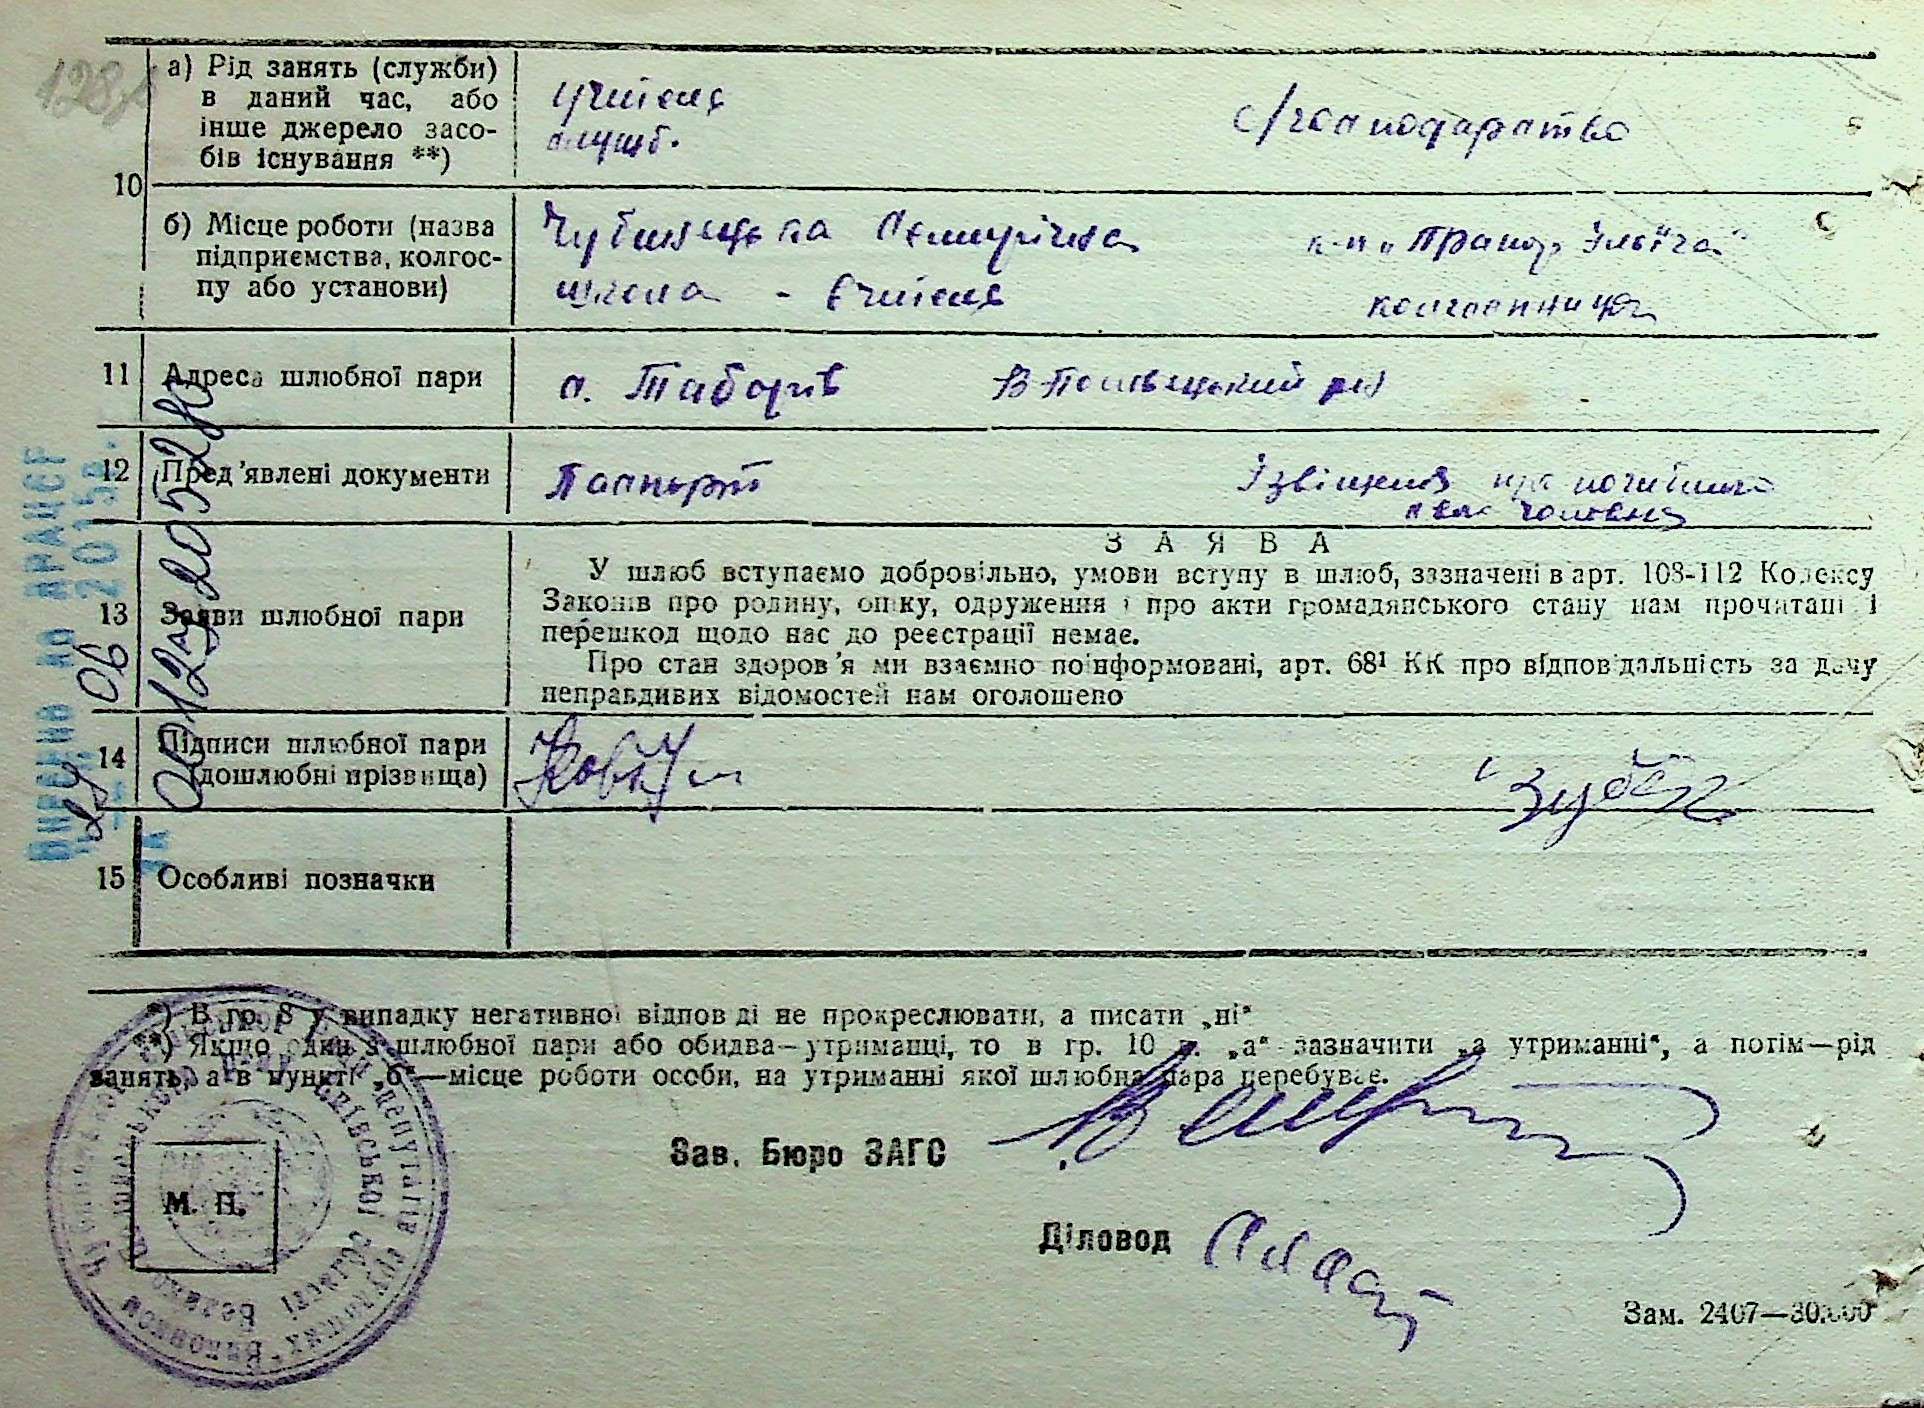 128
10
а) Рід занять (служби)
в даний час, або
інше джерело засо-
бів існування **)
учитель
служб.
с/господарство
б) Місце роботи (назва
підприємства, колгос-
пу або установи)
Чубинецька Семирічна
школа - вчитель
к-п „Прапор Ілліча"
колгоспниця
11
Адреса шлюбної пари
с. Таборів
В-Половецький р-н
12
Пред'явлені документи
Паспорт
Ізвіщення про
чоловіка
13
Заяви шлюбної пари
ЗАЯВА
У шлюб вступаємо добровільно, умови вступу в шлюб, зазначені в арт. 108-112 Кодексу
Законів про родину, опіку, одруження і про акти громадянського стану нам прочитані і
перешкод щодо нас до реєстрації немає.
Про стан здоров'я ми взаємно поінформовані, арт. 68¹ КК про відповідальність за дачу
неправдивих відомостей нам оголошено
14
Підписи шлюбної пари
(дошлюбні прізвища)
15
Особливі позначки
ВНЕСЕНО ДО ДРАЦСГ
29 06 2015р.
00123205280
*) В гр. 8 у випадку негативної відповіді не прокреслювати, а писати „ні"
**) Якщо один з шлюбної пари або обидва—утриманці, то в гр. 10 п. „а" зазначити „а утриманні", а потім—рід
занять, а в пункті „б"—місце роботи особи, на утриманні якої шлюбна пара перебуває.
Зав. Бюро ЗАГС
М. П.
Діловод
Зам. 2407—30.000